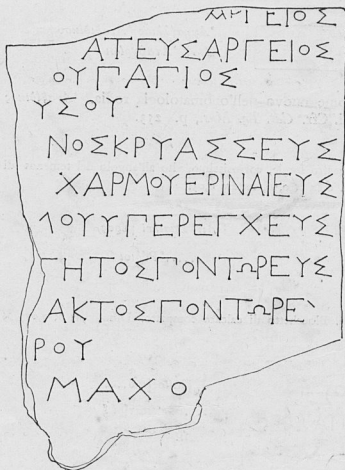 ΑΡΓΕΙΟΣ
ΑΤΕΥΣΑΡΓΕΙΟΣ
ΟΥΓΑΓΙΟΣ
ΥΣΟΥ
ΝΟΣΚΡΥΑΣΣΕΥΣ
ΧΑΡΜΟΥΕΡΙΝΑΙΕΥΣ
ΛΟΥΥΓΕΡΕΓΧΕΥΣ
ΓΗΤΟΣΓΟΝΤΩΡΕΥΣ
ΑΚΤΟΣΓΟΝΤΩΡΕΥ
ΡΟΥ
ΜΑΧΟ